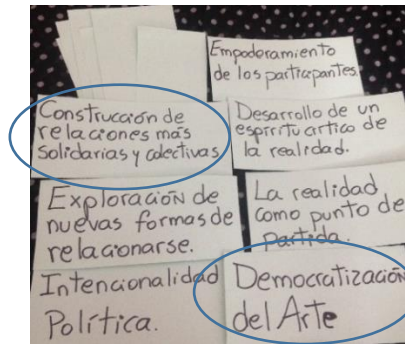 Empoderamiento
de los participantes.
Construcción de
relaciones más
solidarias y colectivas
Desarrollo de un
espíritu crtico de
la realidad.
Exploración de
nuevas formas de
relacionarse.
La realidad
como punto de
partida.
Intencionalidad
Política.
Democratización
del Arte